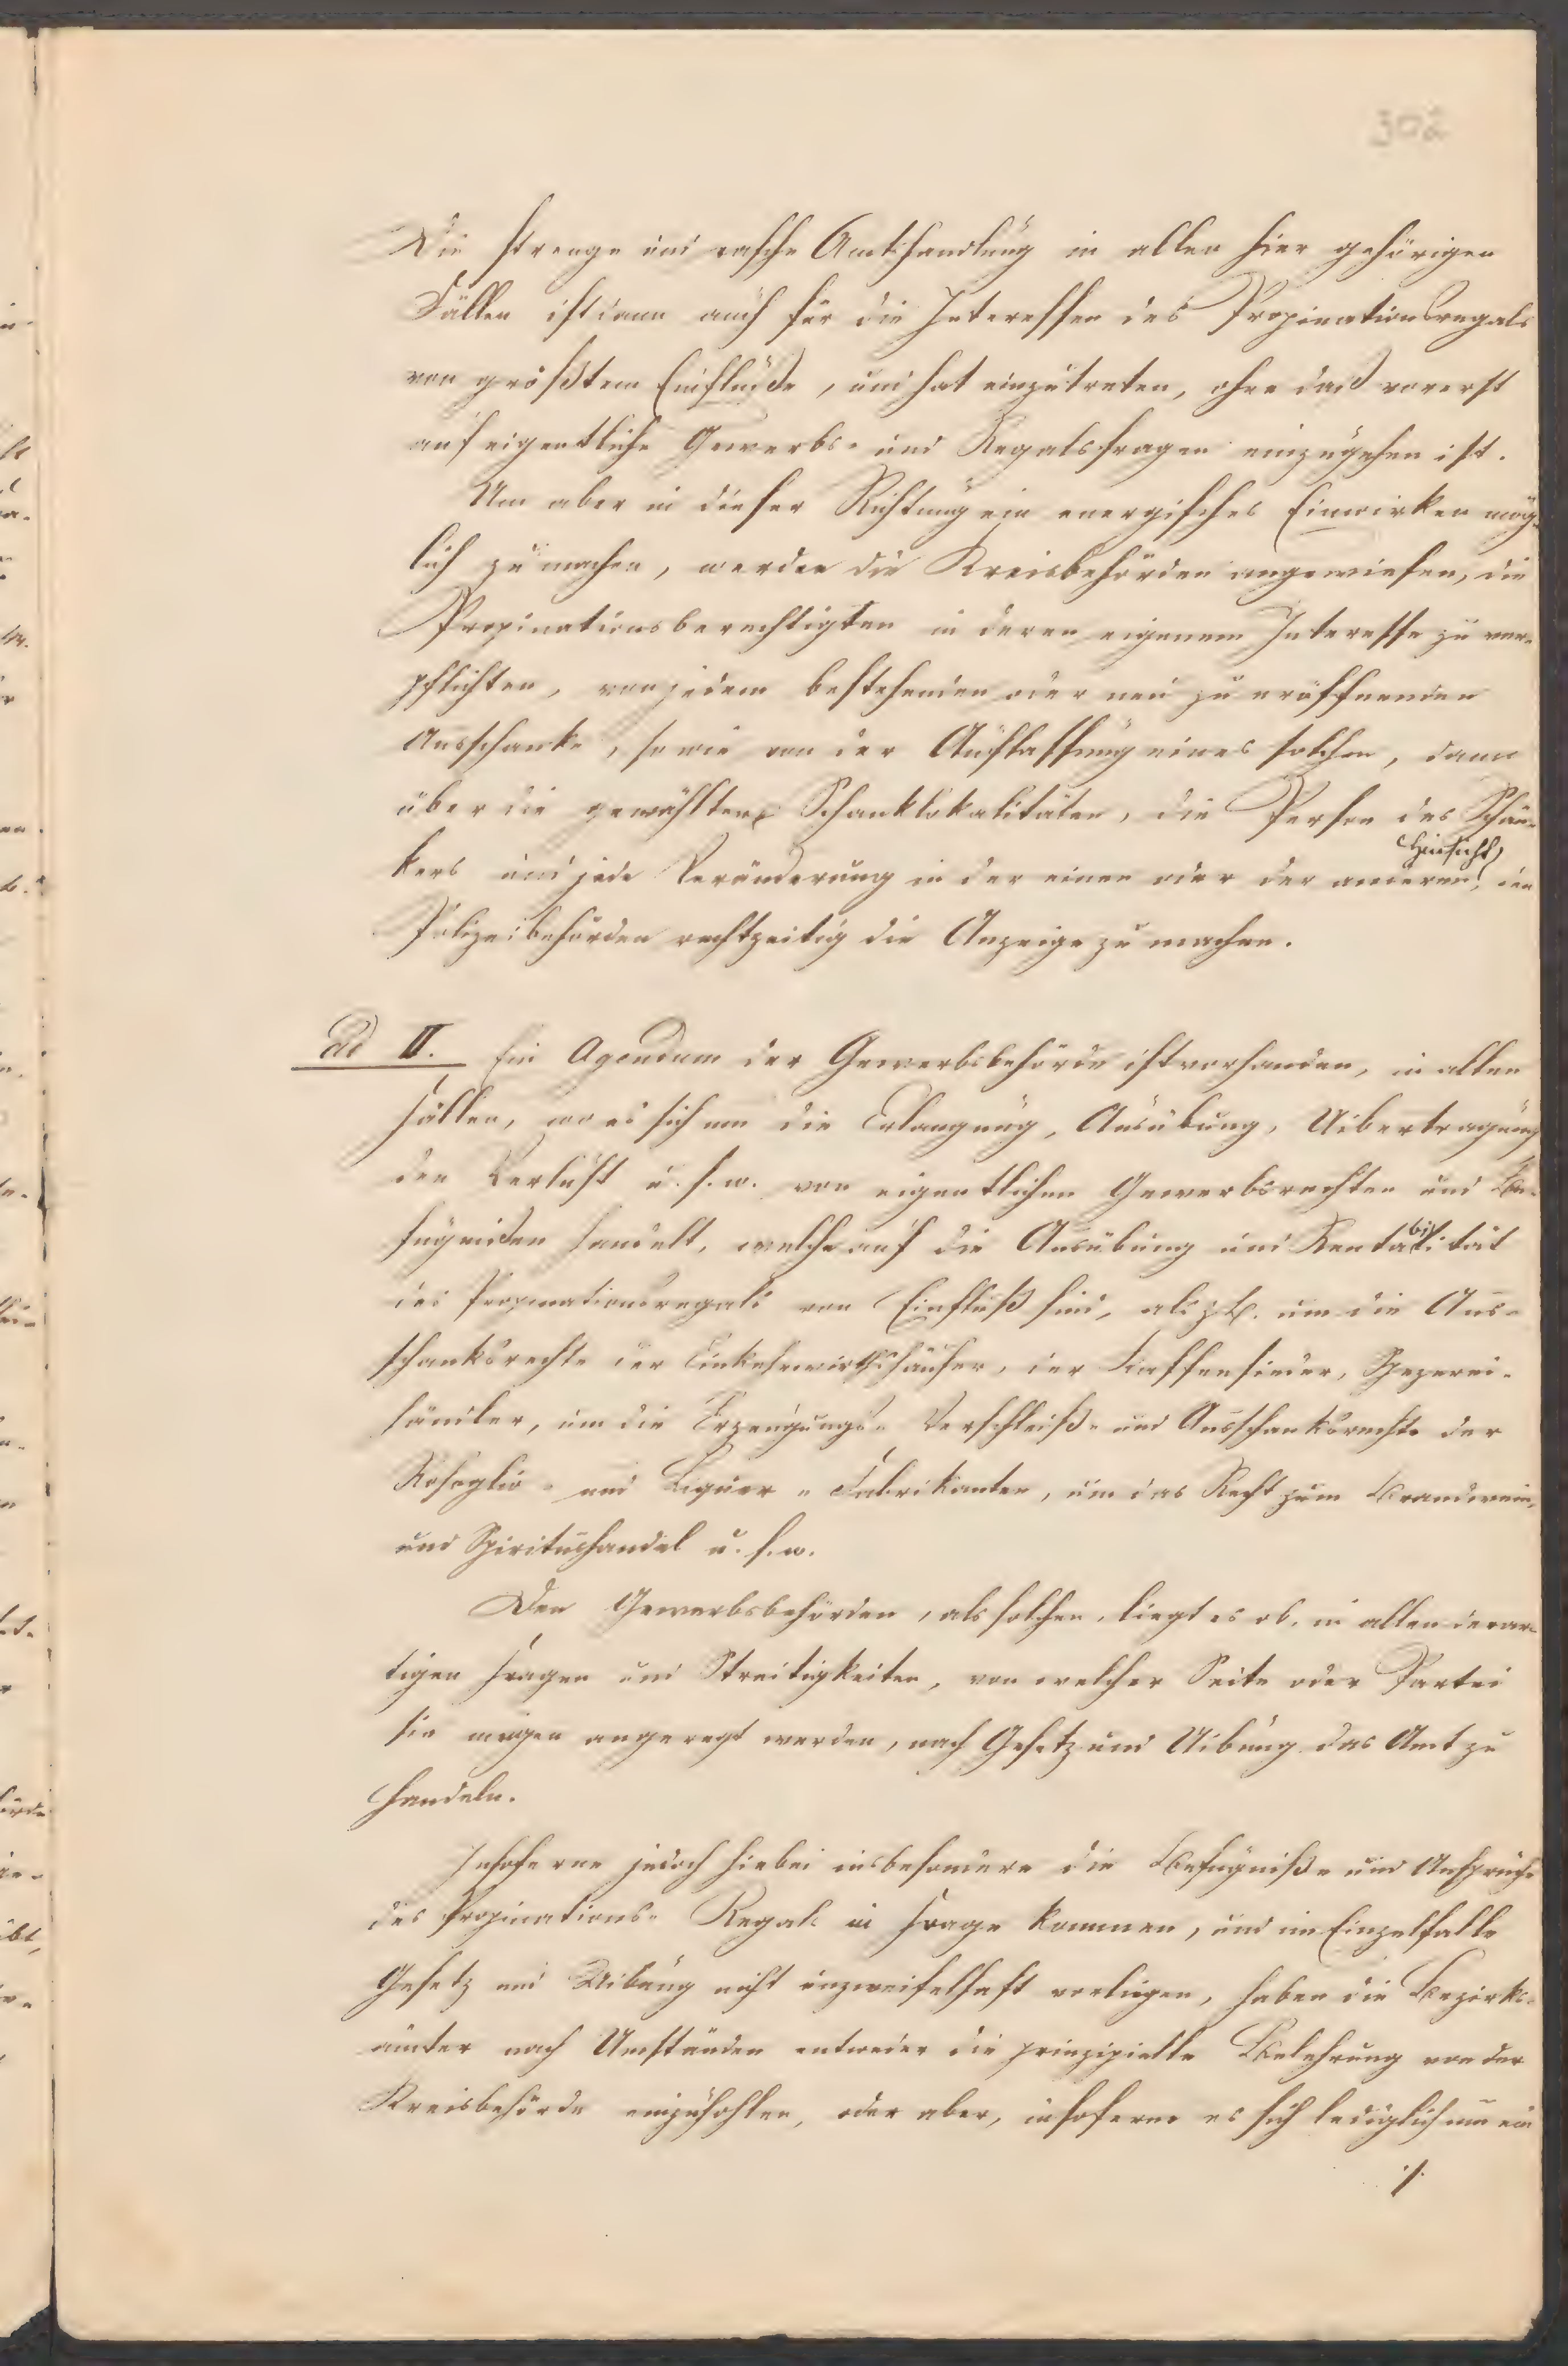 302
Die strenge und rasche Amtshandlung in allen hier gehörigen
Fällen ist dann auch für die Interessen des Propinationsregals
von größtem Einfluße, und hat einzutreten, ohne daß vorerst
auf eigentliche Gewerbs- und Regalsfragen einzugehen ist.
Um aber in dieser Richtung ein energisches Einwirken mög-
lich zu machen, werden die Kreisbehörden angewiesen, die
Propinationsberechtigten in deren eigenem Interesse zu ver-
pflichten, von jedem bestehenden oder neu zu eröffnenden
Ausschanke, sowie von der Auflassung eines solchen, dann
über die gewählten Schanklokalitäten, die Person des Schän-
kers und jede Veränderung in der einen oder der anderen Hinsicht, den
Polizeibehörden rechtzeitig die Anzeige zu machen.
Ad II. Ein Agendum der Gewerbsbehörde ist vorhanden, in allen
Fällen, wo es sich um die Erlangung, Ausübung, Uibertragung
den Verlust u. s. w. von eigentlichen Gewerbsrechten und Be-
fugnißen handelt, welche auf die Ausübung und Rentabilität
des Propinationsregals von Einfluß sind, als z. B. um die Aus-
schanksrechte der Einkehrwirthshäuser, der Kaffeesieder, Spezerei-
händler, um die Erzeugungs- Verschleiß- und Ausschanksrechte der
Rosoglio- und Liquer- Fabrikanten, um das Recht zum Brandwein-
und Spiritushandel u. s. w.
Den Gewerbsbehörden, als solchen, liegt es ob, in allen derar-
tigen Fragen und Streitigkeiten, von welcher Seite oder Partei
sie mögen angeregt werden, nach Gesetz und Uibung das Amt zu
handeln.
Insoferne jedoch hiebei insbesondere die Befugniße und Ansprüche
des Propinations- Regals in Frage kommen, und im Einzelfalle
Gesetz und Uibung nicht unzweifelhaft vorliegen, haben die Bezirks-
ämter nach Umständen entweder die prinzipielle Belehrung von der
Kreisbehörde einzuhohlen, oder aber, insoferne es sich lediglich um ein
./.